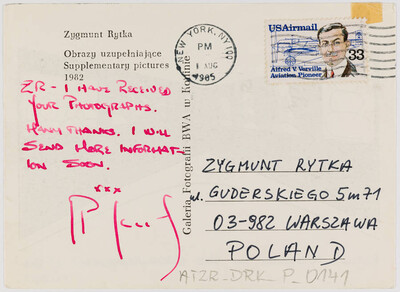 Zygmunt Rytka
Obrazy uzupełniające
Supplementary pictures
1982
ZR - I HAVE RECEIVED
YOUR PHOTOGRAPHS.
MANY THANKS. I WILL
SEND MORE INFORMAT-
ION SOON.
xxx
Galeria Fotografii BWA w Koninie
NEW YORK, NY 100
PM
1 AUG
1985
USAirmail
33
Alfred V. Verville
Aviation Pioneer
ZYGMUNT RYTKA
ul. GUDERSKIEGO 5m71
03-982 WARSZAWA
POLAND
ATZR_DRK_P_0141